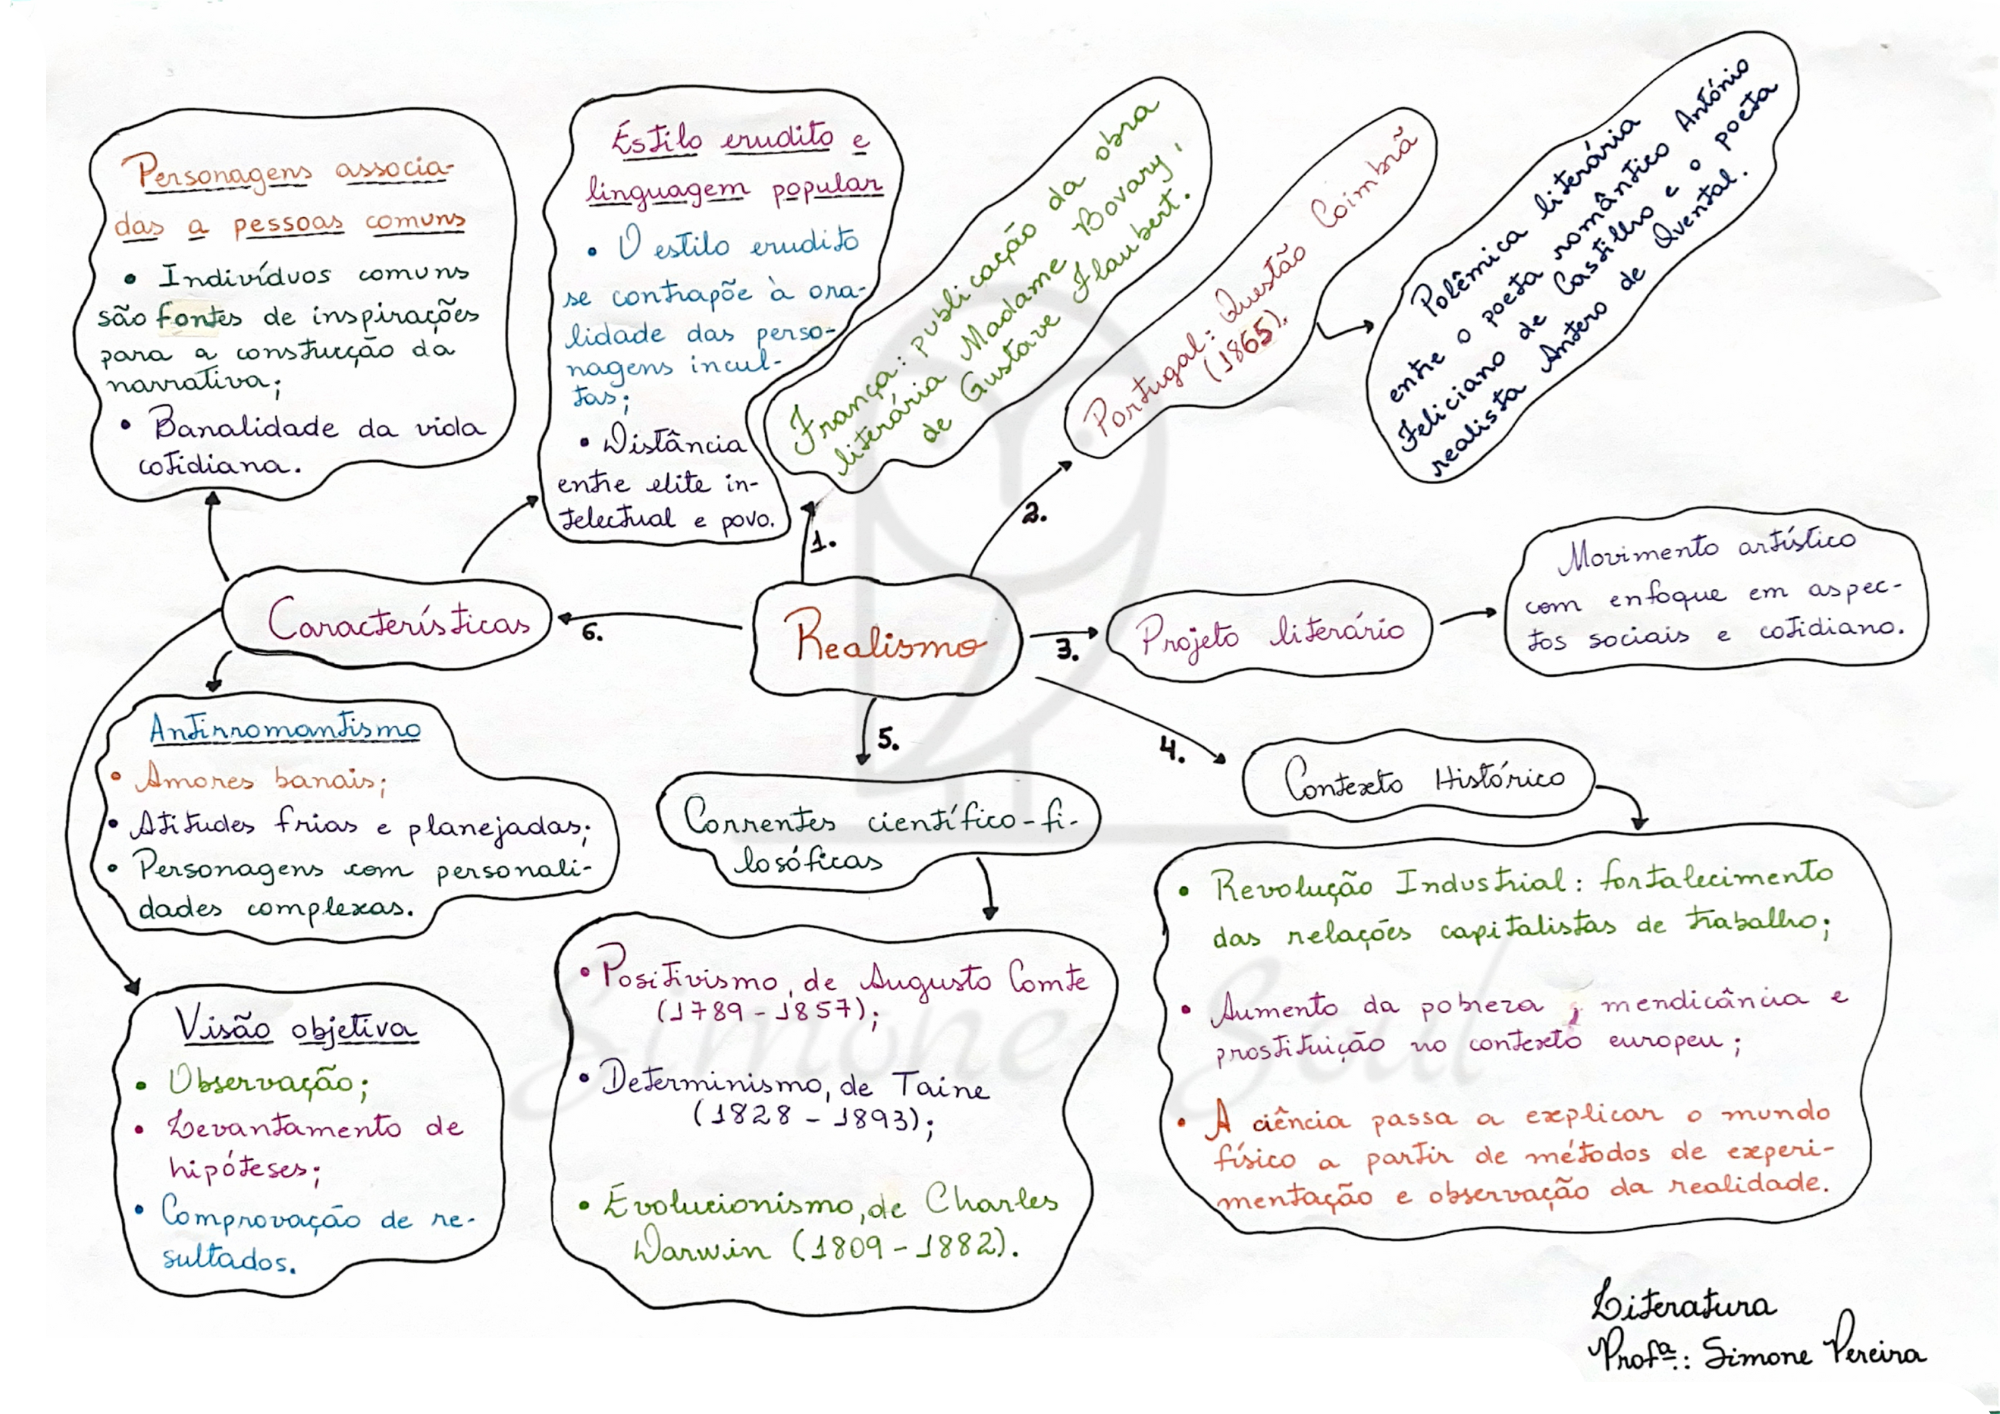 Personagens associa-
das a pessoas comuns
• Indivíduos comuns
são fontes de inspirações
para a constucção da
narrativa;
• Banalidade da vida
cotidiana.
Estilo erudito e
linguagem popular
• O estilo erudito
se contrapõe à ora-
lidade das perso-
nagens incul-
tas;
• Distância
entre elite in-
telectual e povo.
França: publicação da obra
literária Madame Bovary,
de Gustave Flaubert.
Portugal: Questão Coimbrã
(1865).
Polêmica literária
entre o poeta romântico António
Feliciano de Castilho e o poeta
realista Antero de Quental.
1.
2.
Características
6.
Realismo
3.
Projeto literário
Movimento artístico
com enfoque em aspec-
tos sociais e cotidiano.
4.
Contexto Histórico
• Revolução Industrial: fortalecimento
das relações capitalistas de trabalho;
• Aumento da pobreza, mendicância e
prostituição no contexto europeu;
• A ciência passa a explicar o mundo
físico a partir de métodos de experi-
mentação e observação da realidade.
5.
Correntes científico-fi-
losóficas
• Positivismo, de Augusto Comte
(1789-1857);
• Determinismo, de Taine
(1828-1893);
• Evolucionismo, de Charles
Darwin (1809-1882).
Antirromantismo
• Amores banais;
• Atitudes frias e planejadas;
• Personagens com personali-
dades complexas.
Visão objetiva
• Observação;
• Levantamento de
hipóteses;
• Comprovação de re-
sultados.
Simone Soul
Literatura
Profª.: Simone Pereira